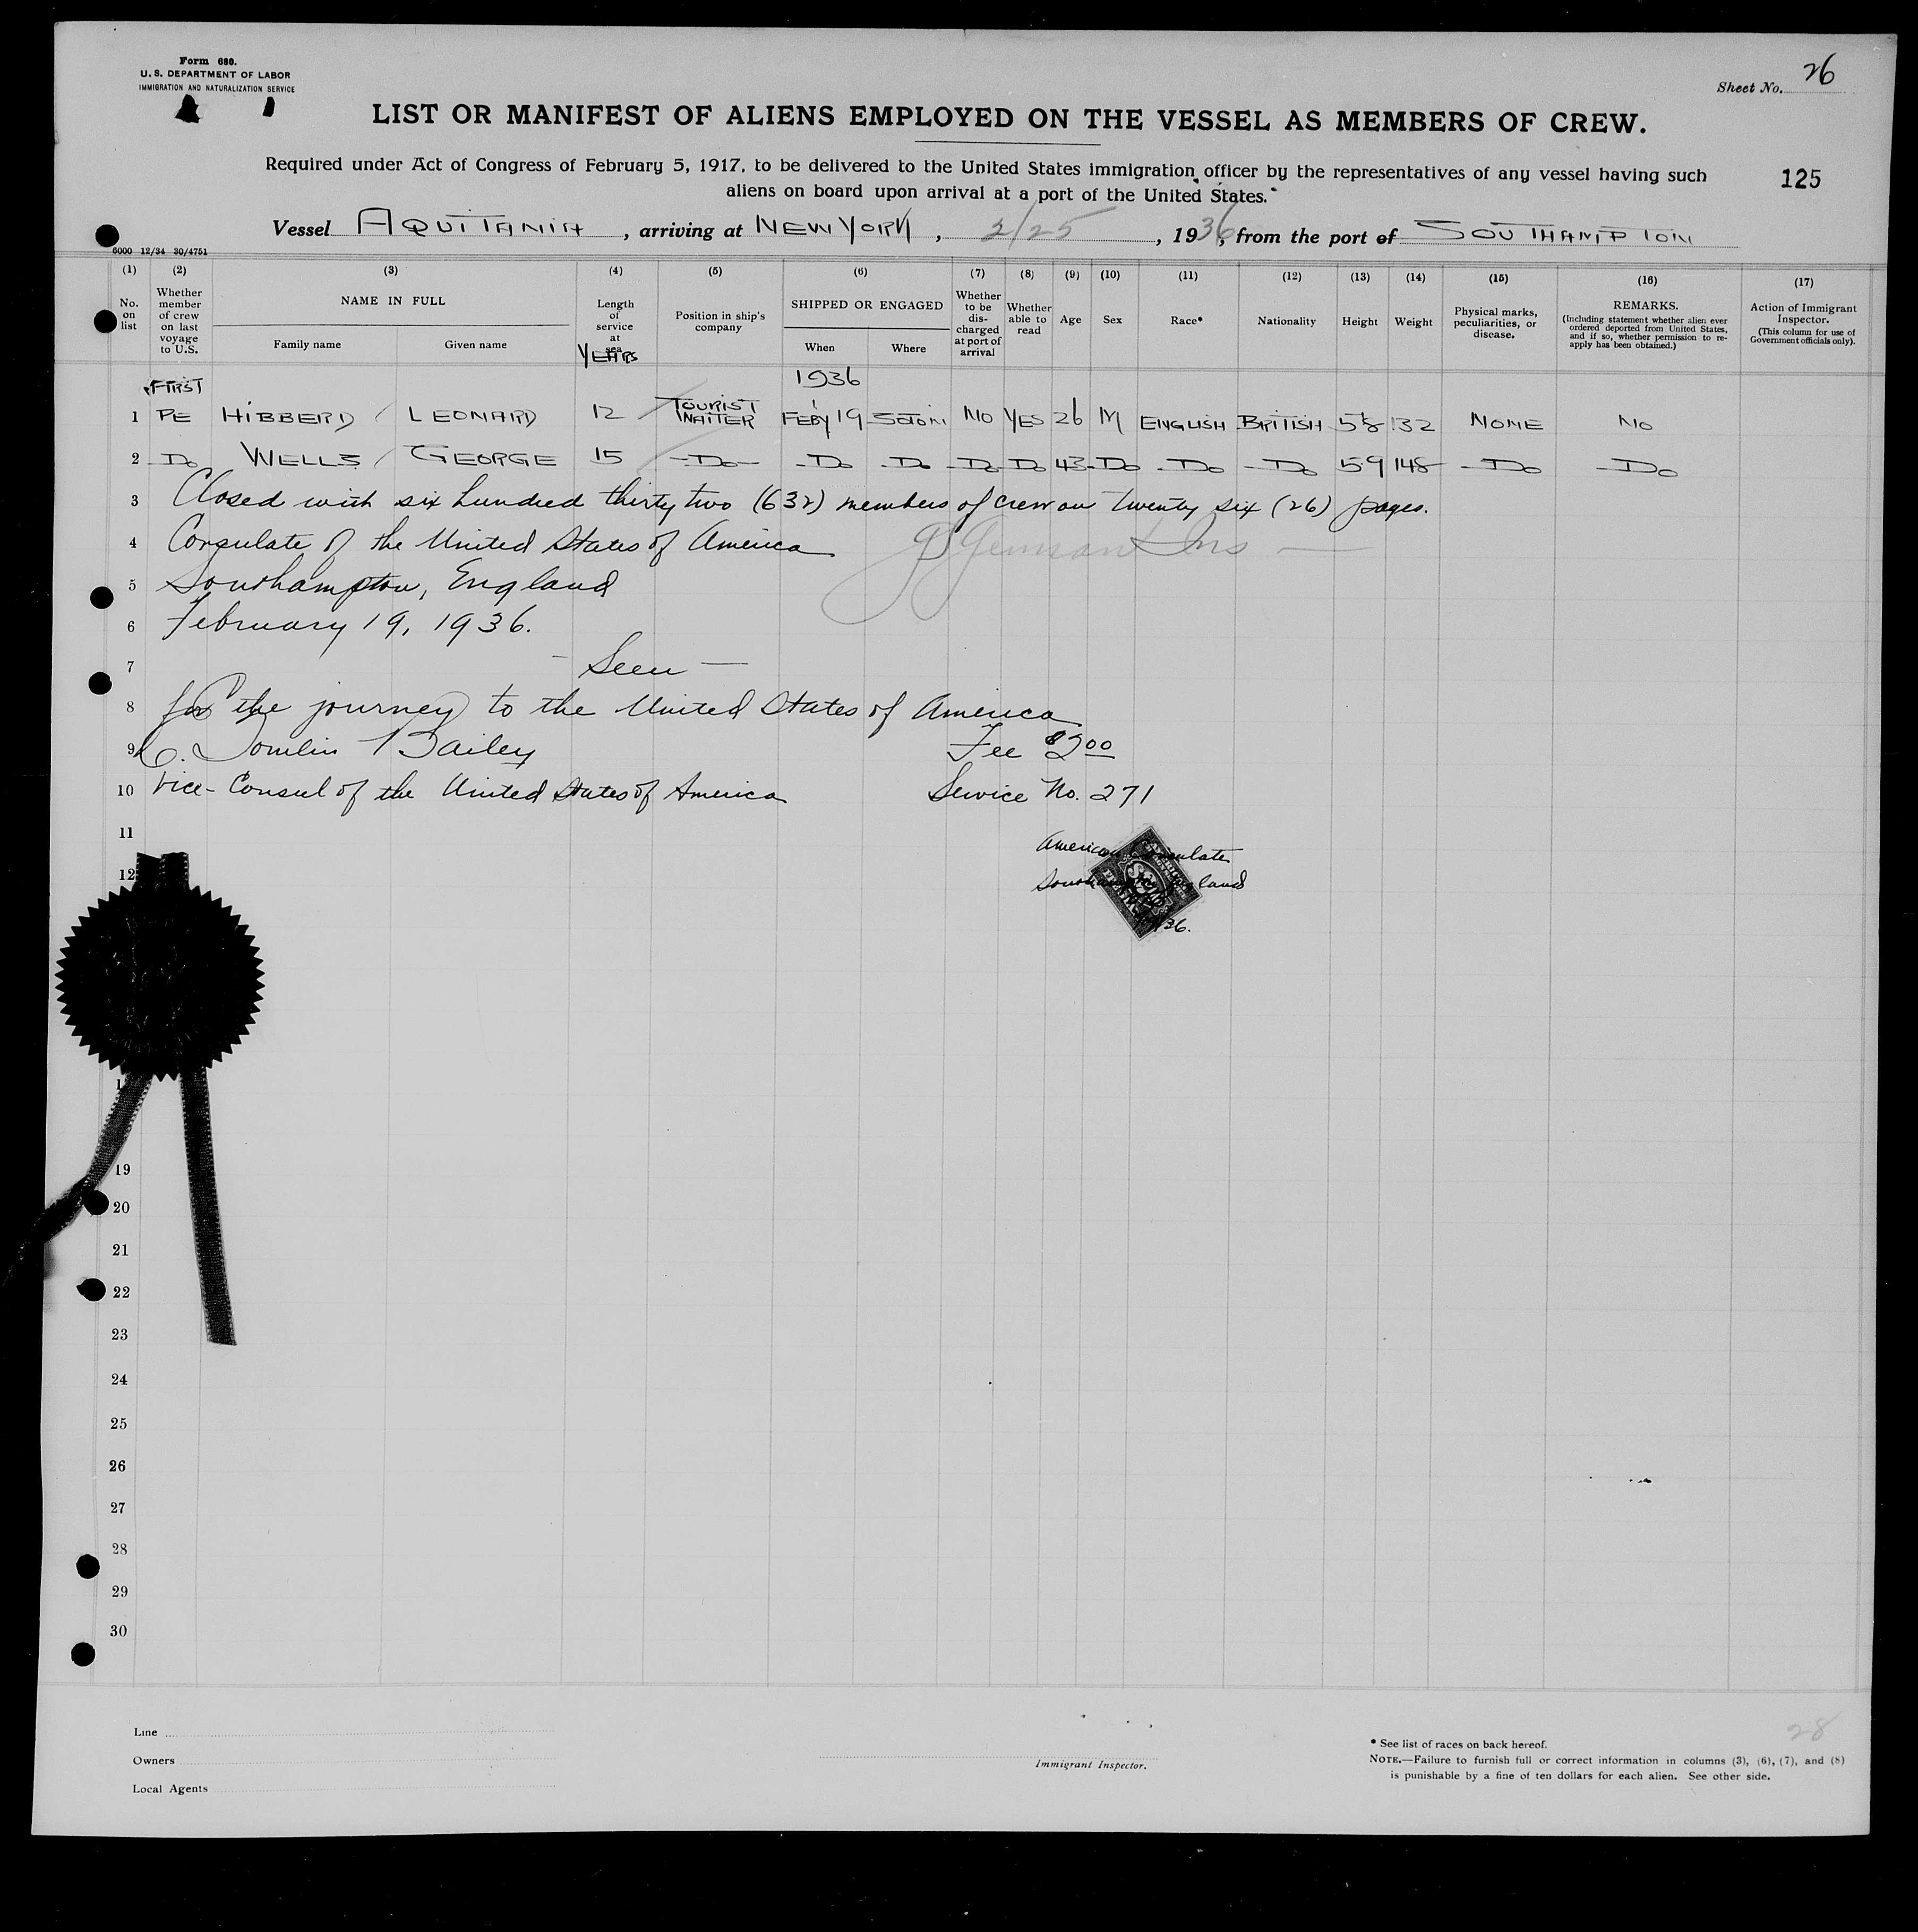 Form 680.
U. S. DEPARTMENT OF LABOR
IMMIGRATION AND NATURALIZATION SERVICE
Sheet No. 26
LIST OR MANIFEST OF ALIENS EMPLOYED ON THE VESSEL AS MEMBERS OF CREW.
Required under Act of Congress of February 5, 1917, to be delivered to the United States immigration officer by the representatives of any vessel having such
aliens on board upon arrival at a port of the United States.
125
Vessel AQUITANIA, arriving at NEW YORK, 2/25, 1936, from the port of SOUTHAMPTON
6000 12/34 30/4751
(1) (2) (3) (4) (5) (6) (7) (8) (9) (10) (11) (12) (13) (14) (15) (16) (17)
No. on list
Whether member of crew on last voyage to U.S.
NAME IN FULL
Family name Given name
Length of service at sea
YEARS
Position in ship's company
SHIPPED OR ENGAGED
When Where
Whether to be discharged at port of arrival
Whether able to read
Age
Sex
Race*
Nationality
Height
Weight
Physical marks, peculiarities, or disease.
REMARKS.
(Including statement whether alien ever ordered deported from United States, and if so, whether permission to re-apply has been obtained.)
Action of Immigrant Inspector.
(This column for use of Government officials only).
FIRST 1936
1 PE HIBBERD LEONARD 12 TOURIST WAITER FEBY 19 SOTON NO YES 26 M ENGLISH BRITISH 58 132 NONE NO
2 Do WELLS GEORGE 15 -Do- -Do -Do -Do -Do 43 -Do -Do -Do 59 148 -Do -Do
3 Closed with six hundred thirty two (632) members of crew on twenty six (26) pages.
4 Consulate of the United States of America
5 Southampton, England
6 February 19, 1936.
7 - Seen -
8 for the journey to the United States of America
9 C. Tomlin Bailey Fee $2.00
10 Vice-Consul of the United States of America Service No. 271
11 American Consulate
12 Southampton, England
36.
19
20
21
22
23
24
25
26
27
28
29
30
Line
Owners
Local Agents
Immigrant Inspector.
28
* See list of races on back hereof.
NOTE.—Failure to furnish full or correct information in columns (3), (6), (7), and (8)
is punishable by a fine of ten dollars for each alien. See other side.